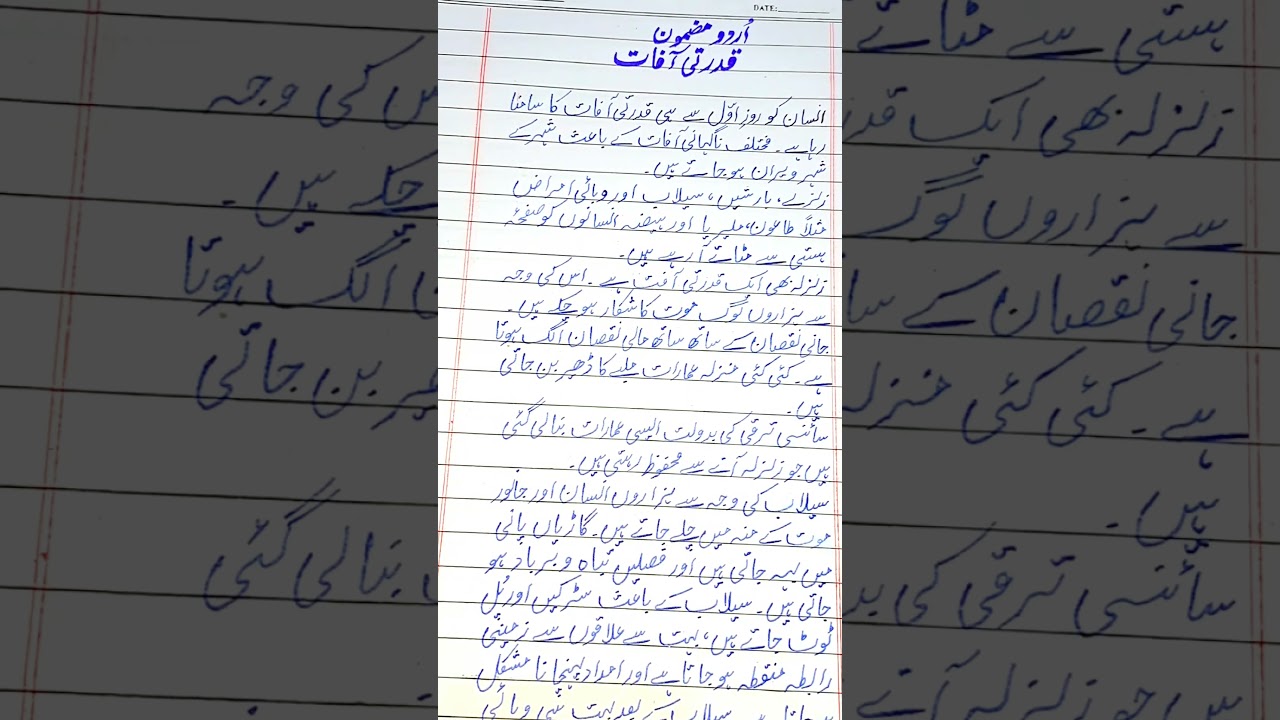 DATE:
اُردو مضمون
قدرتی آفات
انسان کو روزِ اوّل سے ہی قدرتی آفات کا سامنا
رہا ہے۔ مختلف ناگہانی آفات کے باعث شہر کے
شہر ویران ہو جاتے ہیں۔
زلزلے، بارشیں، سیلاب اور وبائی امراض
مثلاً طاعون، ملیریا اور ہیضہ انسانوں کو صفحہ
ہستی سے مٹاتے آ رہے ہیں۔
زلزلہ بھی ایک قدرتی آفت ہے۔ اس کی وجہ
سے ہزاروں لوگ موت کا شکار ہو چکے ہیں۔
جانی نقصان کے ساتھ ساتھ مالی نقصان الگ ہوتا
ہے۔ کئی کئی منزلہ عمارات ملبے کا ڈھیر بن جاتی
ہیں۔
سائنسی ترقی کی بدولت ایسی عمارات بنالی گئی
ہیں جو زلزلہ آنے سے محفوظ رہتی ہیں۔
سیلاب کی وجہ سے ہزاروں انسان اور جانور
موت کے منہ میں چلے جاتے ہیں۔ گاڑیاں پانی
میں بہہ جاتی ہیں اور فصلیں تباہ و برباد ہو
جاتی ہیں۔ سیلاب کے باعث سڑکیں اور پُل
ٹوٹ جاتے ہیں، بہت سے علاقوں سے زمینی
رابطہ منقطہ ہو جاتا ہے اور امداد پہنچانا مشکل
ہو جاتا ہے۔ سیلاب کے بعد بہت سی وبائی